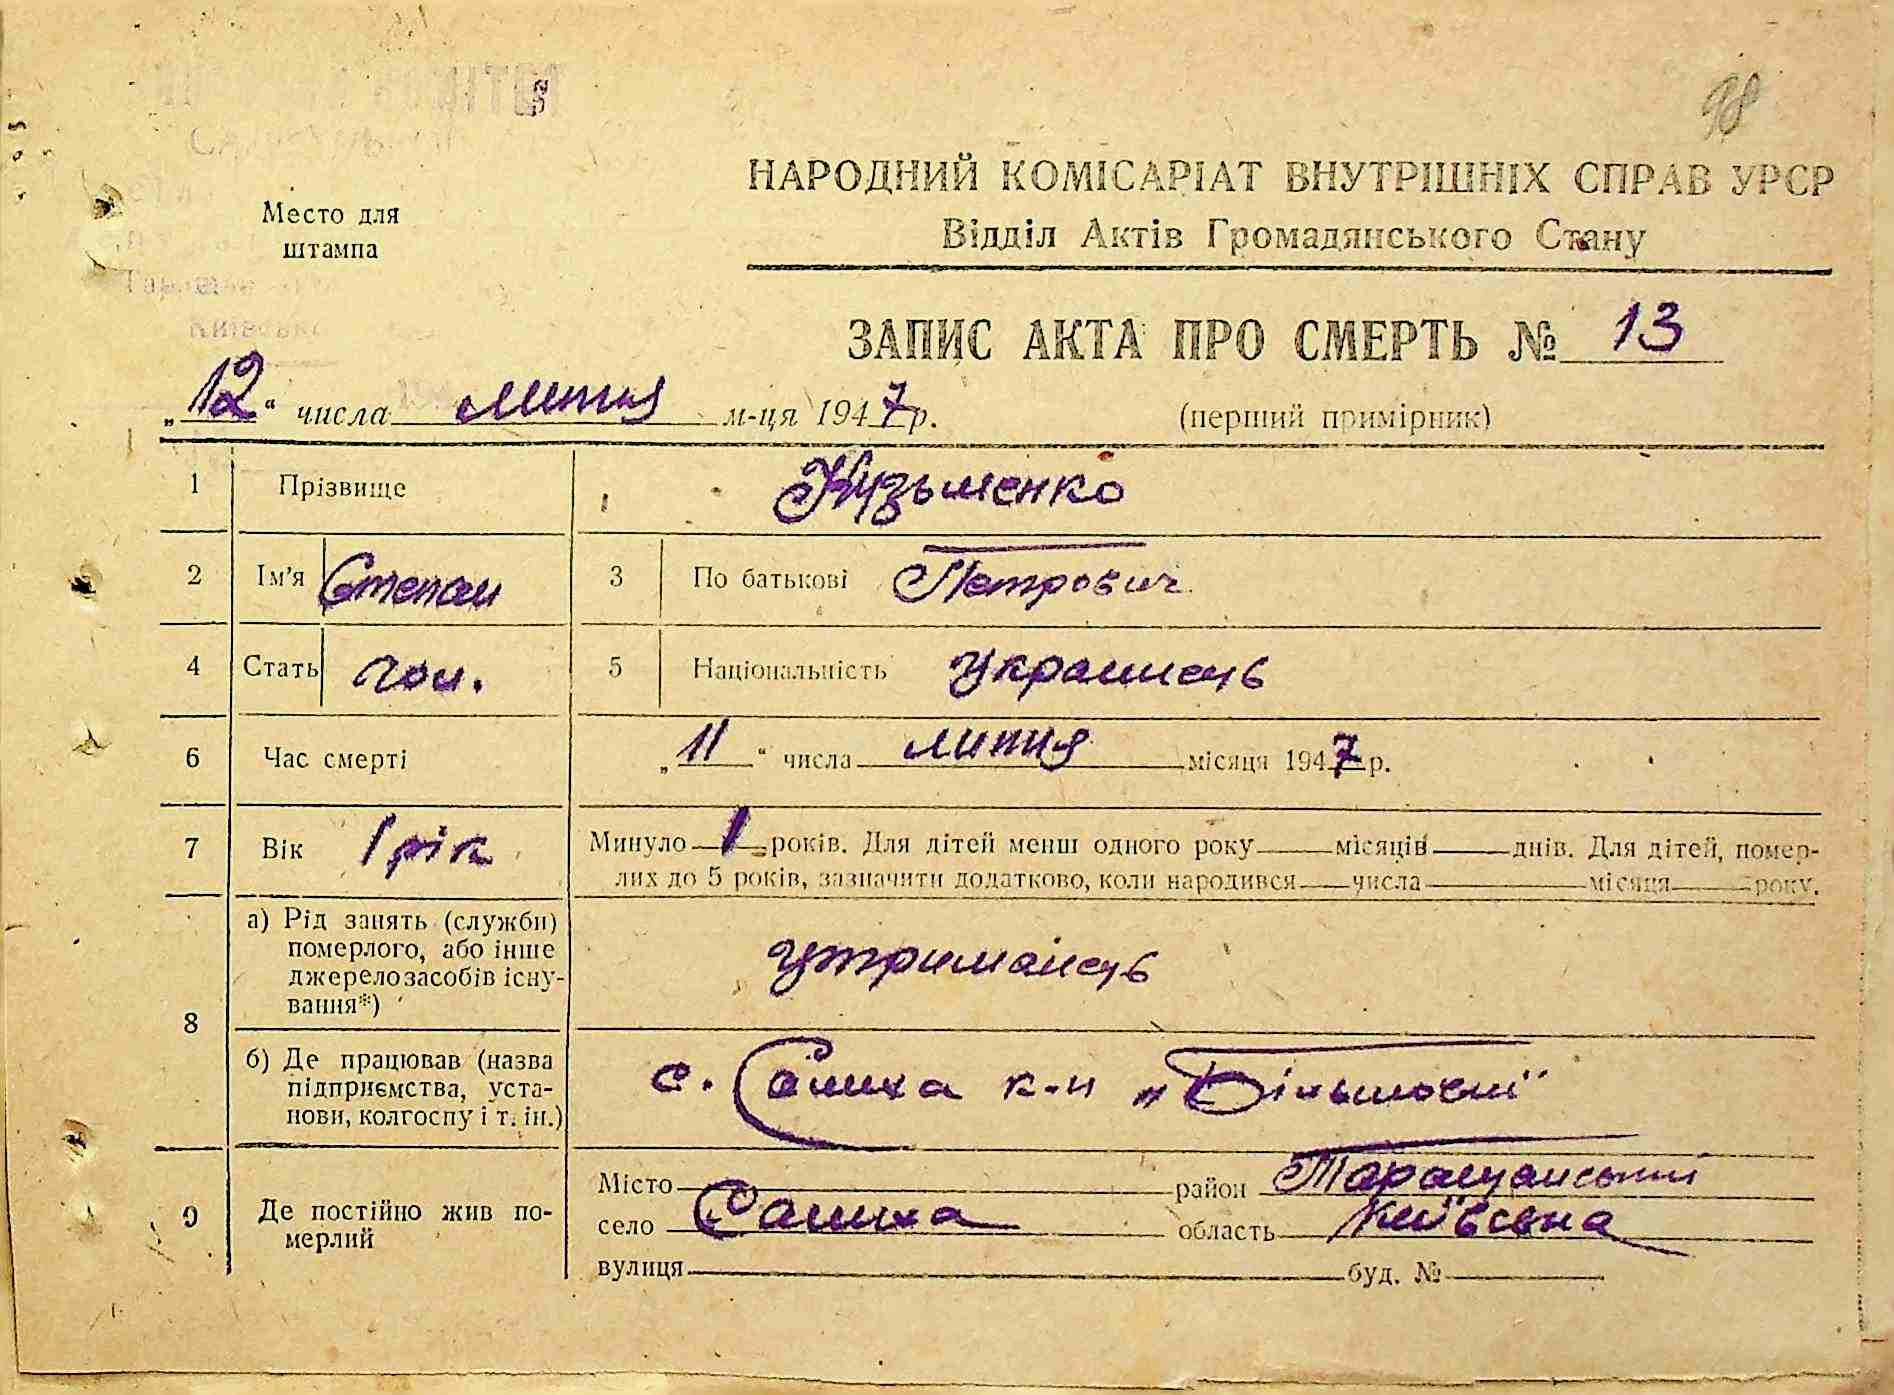 98
НАРОДНИЙ КОМІСАРІАТ ВНУТРІШНІХ СПРАВ УРСР
Відділ Актів Громадянського Стану
Место для
штампа
ЗАПИС АКТА ПРО СМЕРТЬ № 13
„12“ числа липня м-ця 1947 р.
(перший примірник)
1 Прізвище Кузьменко
2 Ім'я Степан 3 По батькові Петрович
4 Стать чол. 5 Національність українець
6 Час смерті „11“ числа липня місяця 1947 р.
7 Вік 1 рік Минуло 1 років. Для дітей менш одного року місяців днів. Для дітей, помер-
лих до 5 років, зазначити додатково, коли народився числа місяця року.
8 а) Рід занять (служби)
померлого, або інше
джерело засобів існу-
вання*)
утриманець
б) Де працював (назва
підприємства, уста-
нови, колгоспу і т. ін.)
с. Салиха к-п „Більшовик"
9 Де постійно жив по-
мерлий
Місто район Таращанський
село Салиха область Київська
вулиця буд. №